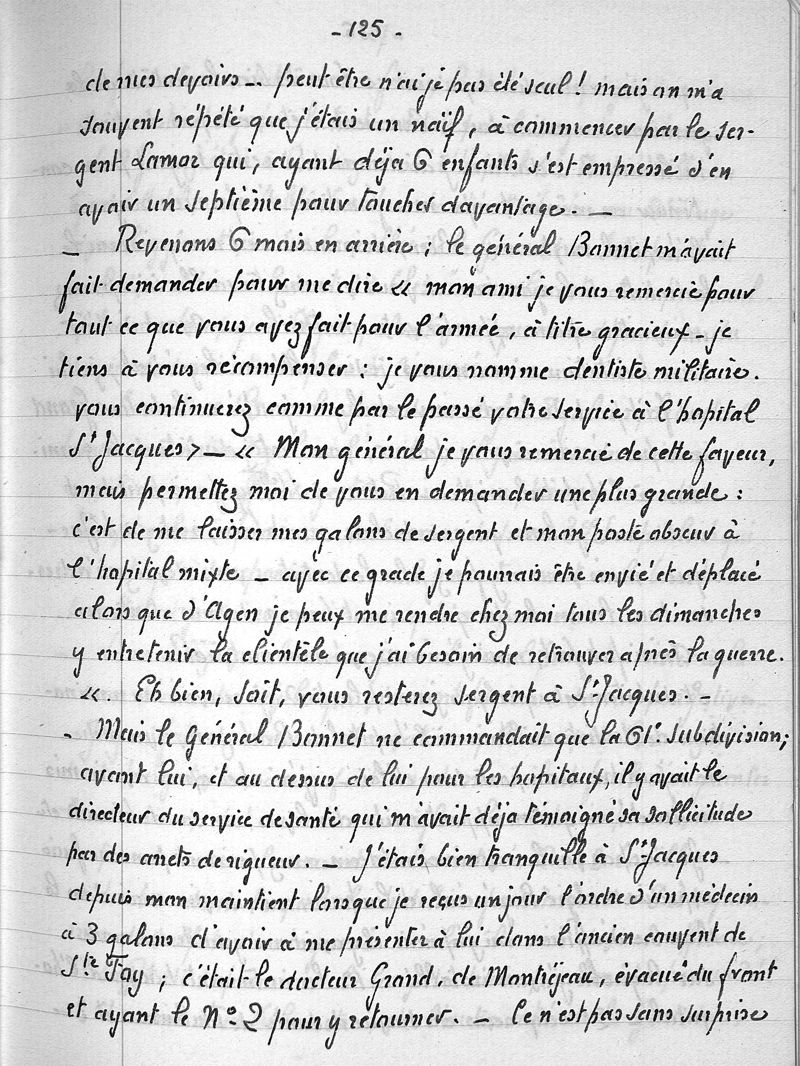 - 125 -
de mes devoirs -. peut être n'ai je pas été seul ! mais on m'a
souvent répété que j'étais un naïf, à commencer par le ser-
gent Lamor qui, ayant déja 6 enfants s'est empressé d'en
avoir un septième pour toucher davantage. -
- Revenons 6 mois en arrière ; le général Bonnet m'avait
fait demander pour me dire « mon ami je vous remercie pour
tout ce que vous avez fait pour l'armée, à titre gracieux - je
tiens à vous récompenser : je vous nomme dentiste militaire.
vous continuerez comme par le passé votre service à l'hopital
St Jacques > - « Mon général je vous remercie de cette faveur,
mais permettez moi de vous en demander une plus grande :
c'est de me laisser mes galons de sergent et mon poste obscur à
l'hopital mixte - avec ce grade je pourrais être envié et déplacé
alors que d'Agen je peux me rendre chez moi tous les dimanches
y entretenir la clientèle que j'ai besoin de retrouver après la guerre.
«. Eh bien, soit, vous resterez sergent à St Jacques. -
- Mais le Général Bonnet ne commandait que la 61e. subdivision;
avant lui, et au dessus de lui pour les hopitaux, il y avait le
directeur du service de santé qui m'avait déja témoigné sa sollicitude
par des arrets de rigueur. - J'étais bien tranquille à St Jacques
depuis mon maintient lorsque je reçus un jour l'ordre d'un médecin
à 3 galons d'avoir à me présenter à lui dans l'ancien couvent de
Ste Foy ; c'était le docteur Grand, de Montréjeau, évacué du front
et ayant le No 2 pour y retourner. - Ce n'est pas sans surprise